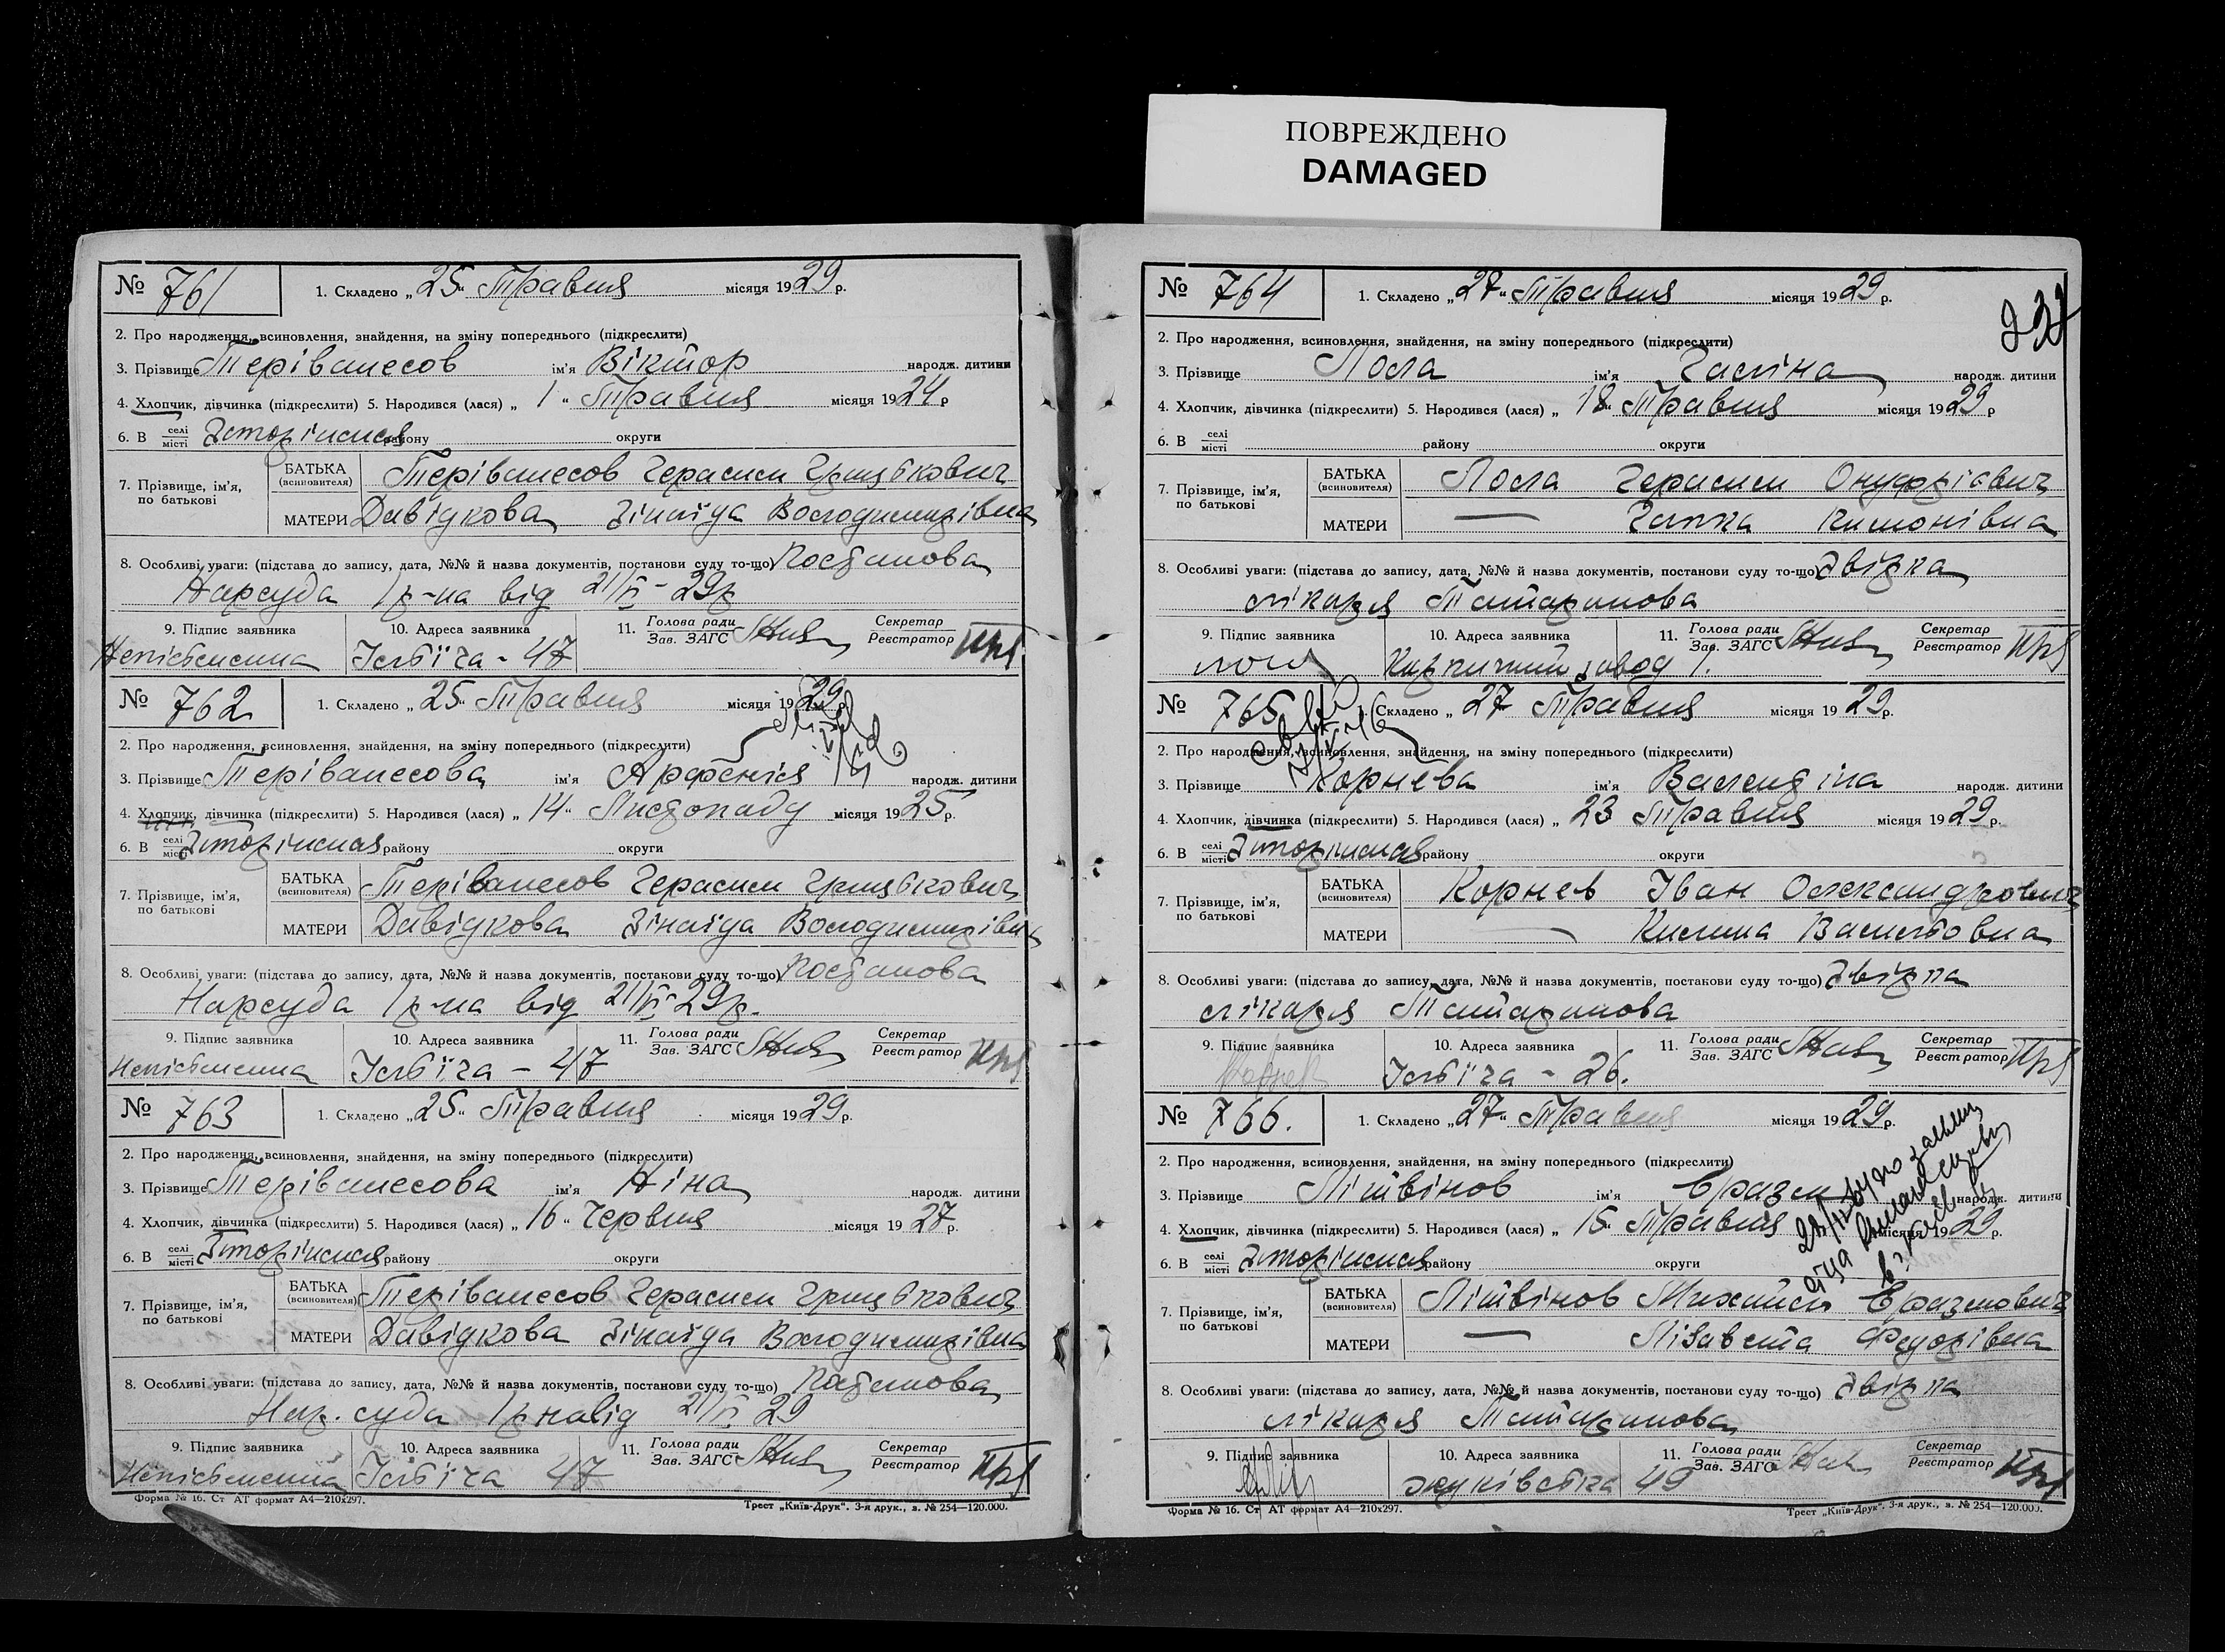 ПОВРЕЖДЕНО
DAMAGED
№ 761 1. Складено „25“ Травня місяця 1929 р.
2. Про народження, всиновлення, знайдення, на зміну попереднього (підкреслити)
3. Прізвище Теріванесов ім'я Віктор народж. дитини
4. Хлопчик, дівчинка (підкреслити) 5. Народився (лася) „1“ Травня місяця 1924 р
6. В селі місті району округи
7. Прізвище, ім'я, по батькові БАТЬКА (всиновителя) Теріванесов Герасим
МАТЕРИ Давідкова Зінаїда Володимирівна
8. Особливі уваги: (підстава до запису, дата, №№ й назва документів, постанови суду то-що) Постанова
Нарсуда 1 р-на від 21/V-29р
9. Підпис заявника 10. Адреса заявника 11. Голова ради Зав. ЗАГС Секретар Реєстратор
Неписьменна Ілліча - 47
№ 762 1. Складено „25“ Травня місяця 1929 р.
2. Про народження, всиновлення, знайдення, на зміну попереднього (підкреслити)
3. Прізвище Теріванесова ім'я Арфенія народж. дитини
4. Хлопчик, дівчинка (підкреслити) 5. Народився (лася) „14“ Листопаду місяця 1925 р.
6. В селі місті району округи
7. Прізвище, ім'я, по батькові БАТЬКА (всиновителя) Теріванесов Герасим
МАТЕРИ Давідкова Зінаїда Володимирівна
8. Особливі уваги: (підстава до запису, дата, №№ й назва документів, постанови суду то-що) Постанова
Нарсуда 1 р-на від 21/V-29р.
9. Підпис заявника 10. Адреса заявника 11. Голова ради Зав. ЗАГС Секретар Реєстратор
Неписьменна Ілліча - 47
№ 763 1. Складено „25“ Травня місяця 1929 р.
2. Про народження, всиновлення, знайдення, на зміну попереднього (підкреслити)
3. Прізвище Теріванесова ім'я Ніна народж. дитини
4. Хлопчик, дівчинка (підкреслити) 5. Народився (лася) „16“ Червня місяця 1927 р.
6. В селі місті району округи
7. Прізвище, ім'я, по батькові БАТЬКА (всиновителя) Теріванесов Герасим
МАТЕРИ Давідкова Зінаїда Володимирівна
8. Особливі уваги: (підстава до запису, дата, №№ й назва документів, постанови суду то-що) Постанова
Нар. суда 1 р на від 21/V 29
9. Підпис заявника 10. Адреса заявника 11. Голова ради Зав. ЗАГС Секретар Реєстратор
Неписьменна Ілліча 47
Форма № 16. Ст АТ формат А4—210х297. Трест „Київ-Друк“. 3-я друк., з. № 254—120.000.
№ 764 1. Складено „27“ Травня місяця 1929 р.
2. Про народження, всиновлення, знайдення, на зміну попереднього (підкреслити)
3. Прізвище Лола ім'я Галіна народж. дитини
4. Хлопчик, дівчинка (підкреслити) 5. Народився (лася) „18“ Травня місяця 1929 р
6. В селі місті району округи
7. Прізвище, ім'я, по батькові БАТЬКА (всиновителя) Лола Герасим Онуфрієвич
МАТЕРИ — Ганна
8. Особливі уваги: (підстава до запису, дата, №№ й назва документів, постанови суду то-що) Звірка
лікаря Татаринова
9. Підпис заявника 10. Адреса заявника 11. Голова ради Зав. ЗАГС Секретар Реєстратор
Кирпичний завод 1.
№ 765 1. Складено „27 Травня місяця 1929 р.
2. Про народження, всиновлення, знайдення, на зміну попереднього (підкреслити)
3. Прізвище Корнева ім'я Валендіна народж. дитини
4. Хлопчик, дівчинка (підкреслити) 5. Народився (лася) „23 Травня місяця 1929 р.
6. В селі місті району округи
7. Прізвище, ім'я, по батькові БАТЬКА (всиновителя) Корнев Іван Олександрович
МАТЕРИ —
8. Особливі уваги: (підстава до запису, дата, №№ й назва документів, постанови суду то-що) Звірка
лікаря Татаринова
9. Підпис заявника 10. Адреса заявника 11. Голова ради Зав. ЗАГС Секретар Реєстратор
Ілліча - 26.
№ 766. 1. Складено „27“ Травня місяця 1929 р.
2. Про народження, всиновлення, знайдення, на зміну попереднього (підкреслити)
3. Прізвище Літвінов ім'я Єразм народж. дитини
4. Хлопчик, дівчинка (підкреслити) 5. Народився (лася) „15“ Травня місяця 1929 р.
6. В селі місті району округи
7. Прізвище, ім'я, по батькові БАТЬКА (всиновителя) Літвінов Михайло Єразмович
МАТЕРИ — Лізавета Федорівна
8. Особливі уваги: (підстава до запису, дата, №№ й назва документів, постанови суду то-що) Звірка
лікаря Татаринова
9. Підпис заявника 10. Адреса заявника 11. Голова ради Зав. ЗАГС Секретар Реєстратор
49
Форма № 16. Ст АТ формат А4—210х297. Трест „Київ-Друк“. 3-я друк., з. № 254—120.000.